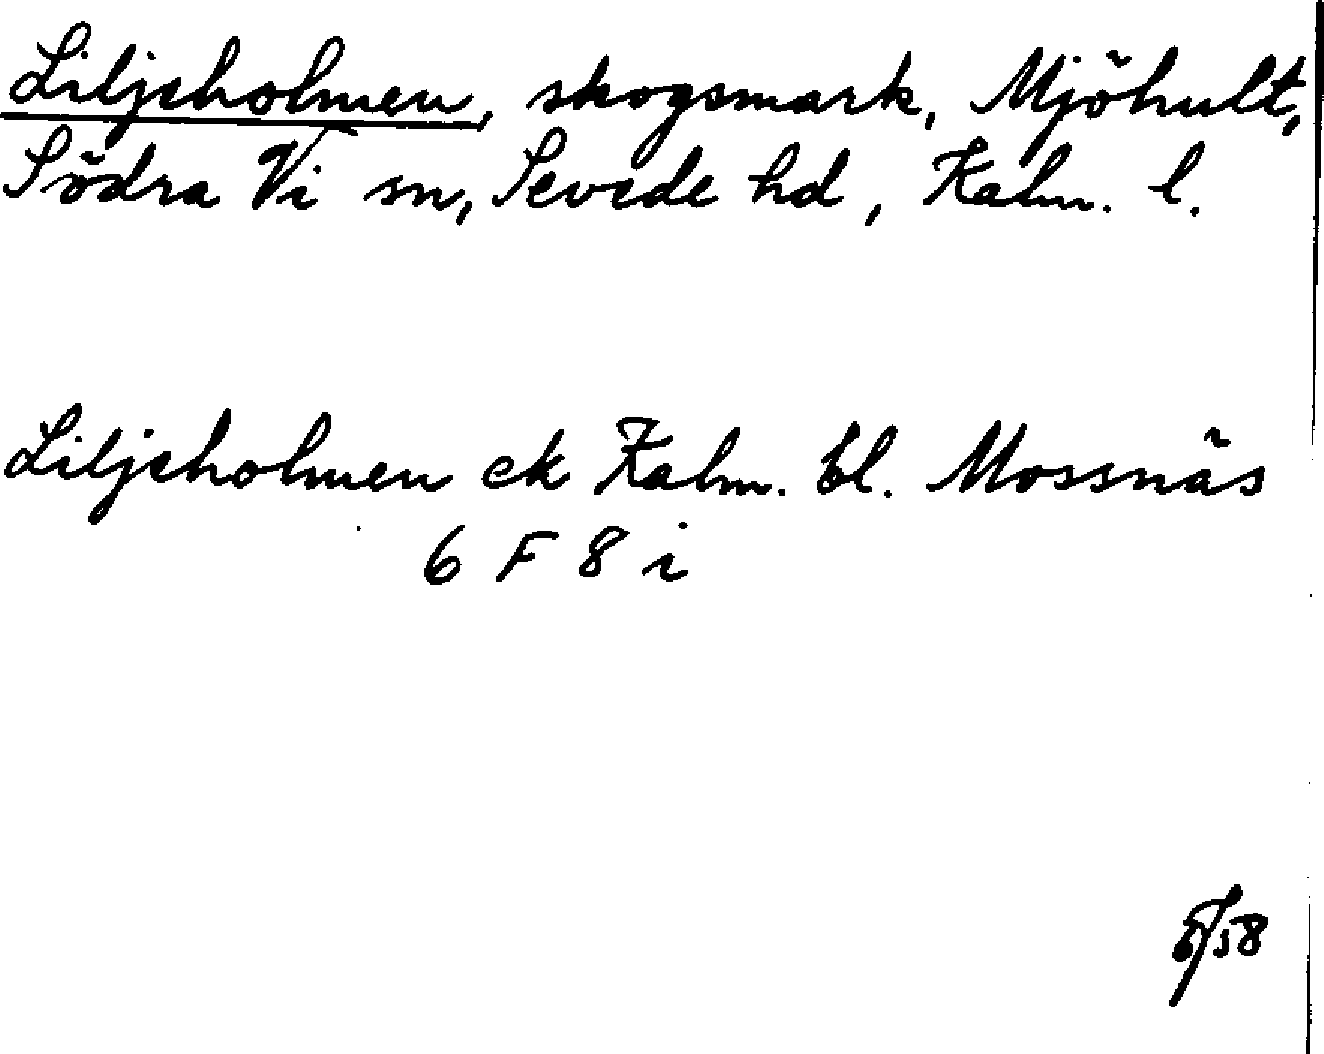 Liljeholmen, skogsmark, Mjöhult,
Södra Vi sn, Sevede hd, Kalm. l.
Liljeholmen ek Kalm. bl. Mossnäs
6 F 8 i